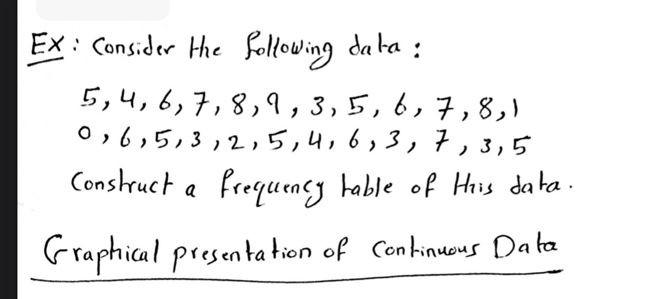 EX: Consider the following data:
5, 4, 6, 7, 8, 9, 3, 5, 6, 7, 8, 1
0, 6, 5, 3, 2, 5, 4, 6, 3, 7, 3, 5
Construct a frequency table of this data.
Graphical presentation of Continuous Data